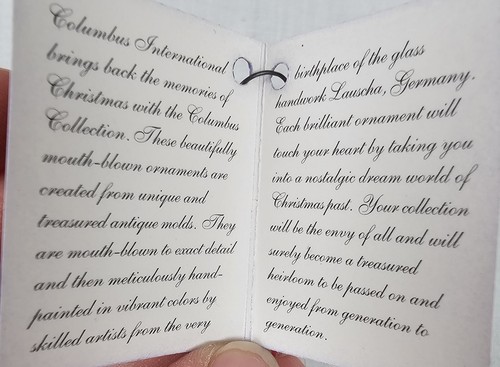 Columbus International
brings back the memories of
Christmas with the Columbus
Collection. These beautifully
mouth-blown ornaments are
created from unique and
treasured antique molds. They
are mouth-blown to exact detail
and then meticulously hand-
painted in vibrant colors by
skilled artists from the very
birthplace of the glass
handwork Lauscha, Germany.
Each brilliant ornament will
touch your heart by taking you
into a nostalgic dream world of
Christmas past. Your collection
will be the envy of all and will
surely become a treasured
heirloom to be passed on and
enjoyed from generation to
generation.